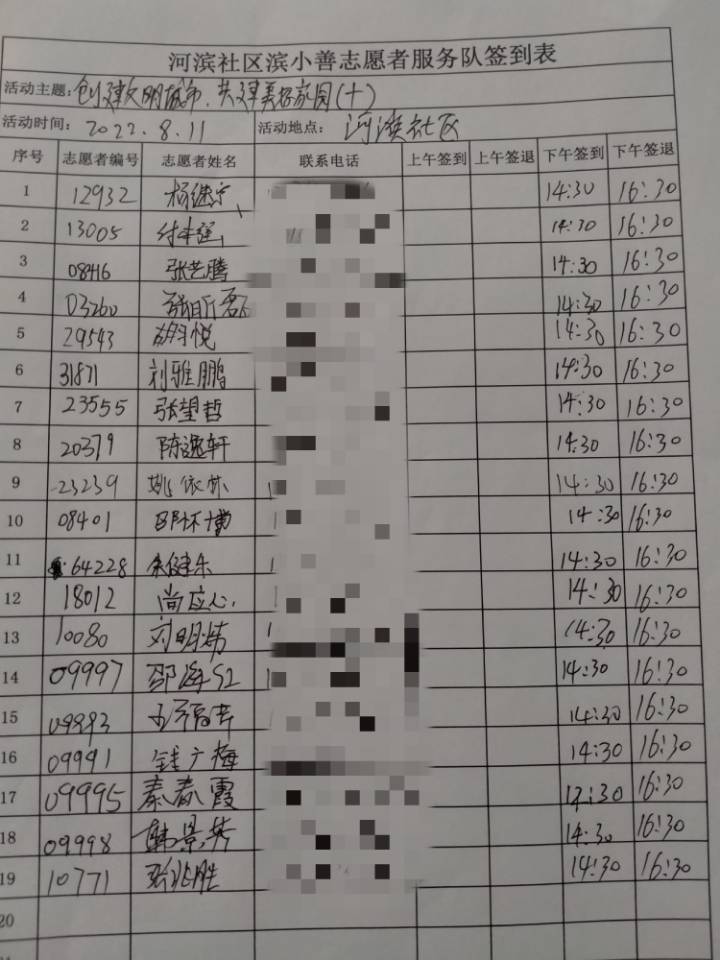 河滨社区滨小善志愿者服务队签到表
活动主题：创建文明城市、共建美好家园（十）
活动时间： 2022.8.11 活动地点： 河滨社区
序号 志愿者编号 志愿者姓名 联系电话 上午签到 上午签退 下午签到 下午签退
1 12932 14:30 16:30
2 13005 14:30 16:30
3 08416 张艺腾 14:30 16:30
4 03260 张昕磊 14:30 16:30
5 29543 胡悦 14:30 16:30
6 31871 刘雅鹏 14:30 16:30
7 23555 张望哲 14:30 16:30
8 20379 陈逸轩 14:30 16:30
9 23239 姚依林 14:30 16:30
10 08401 邵怀博 14:30 16:30
11 64228 朱健乐 14:30 16:30
12 18012 尚应心 14:30 16:30
13 10080 刘明炜 14:30 16:30
14 09997 邵海红 14:30 16:30
15 09993 14:30 16:30
16 09991 钱广梅 14:30 16:30
17 09995 秦春霞 14:30 16:30
18 09998 韩景华 14:30 16:30
19 10771 张兆胜 14:30 16:30
20